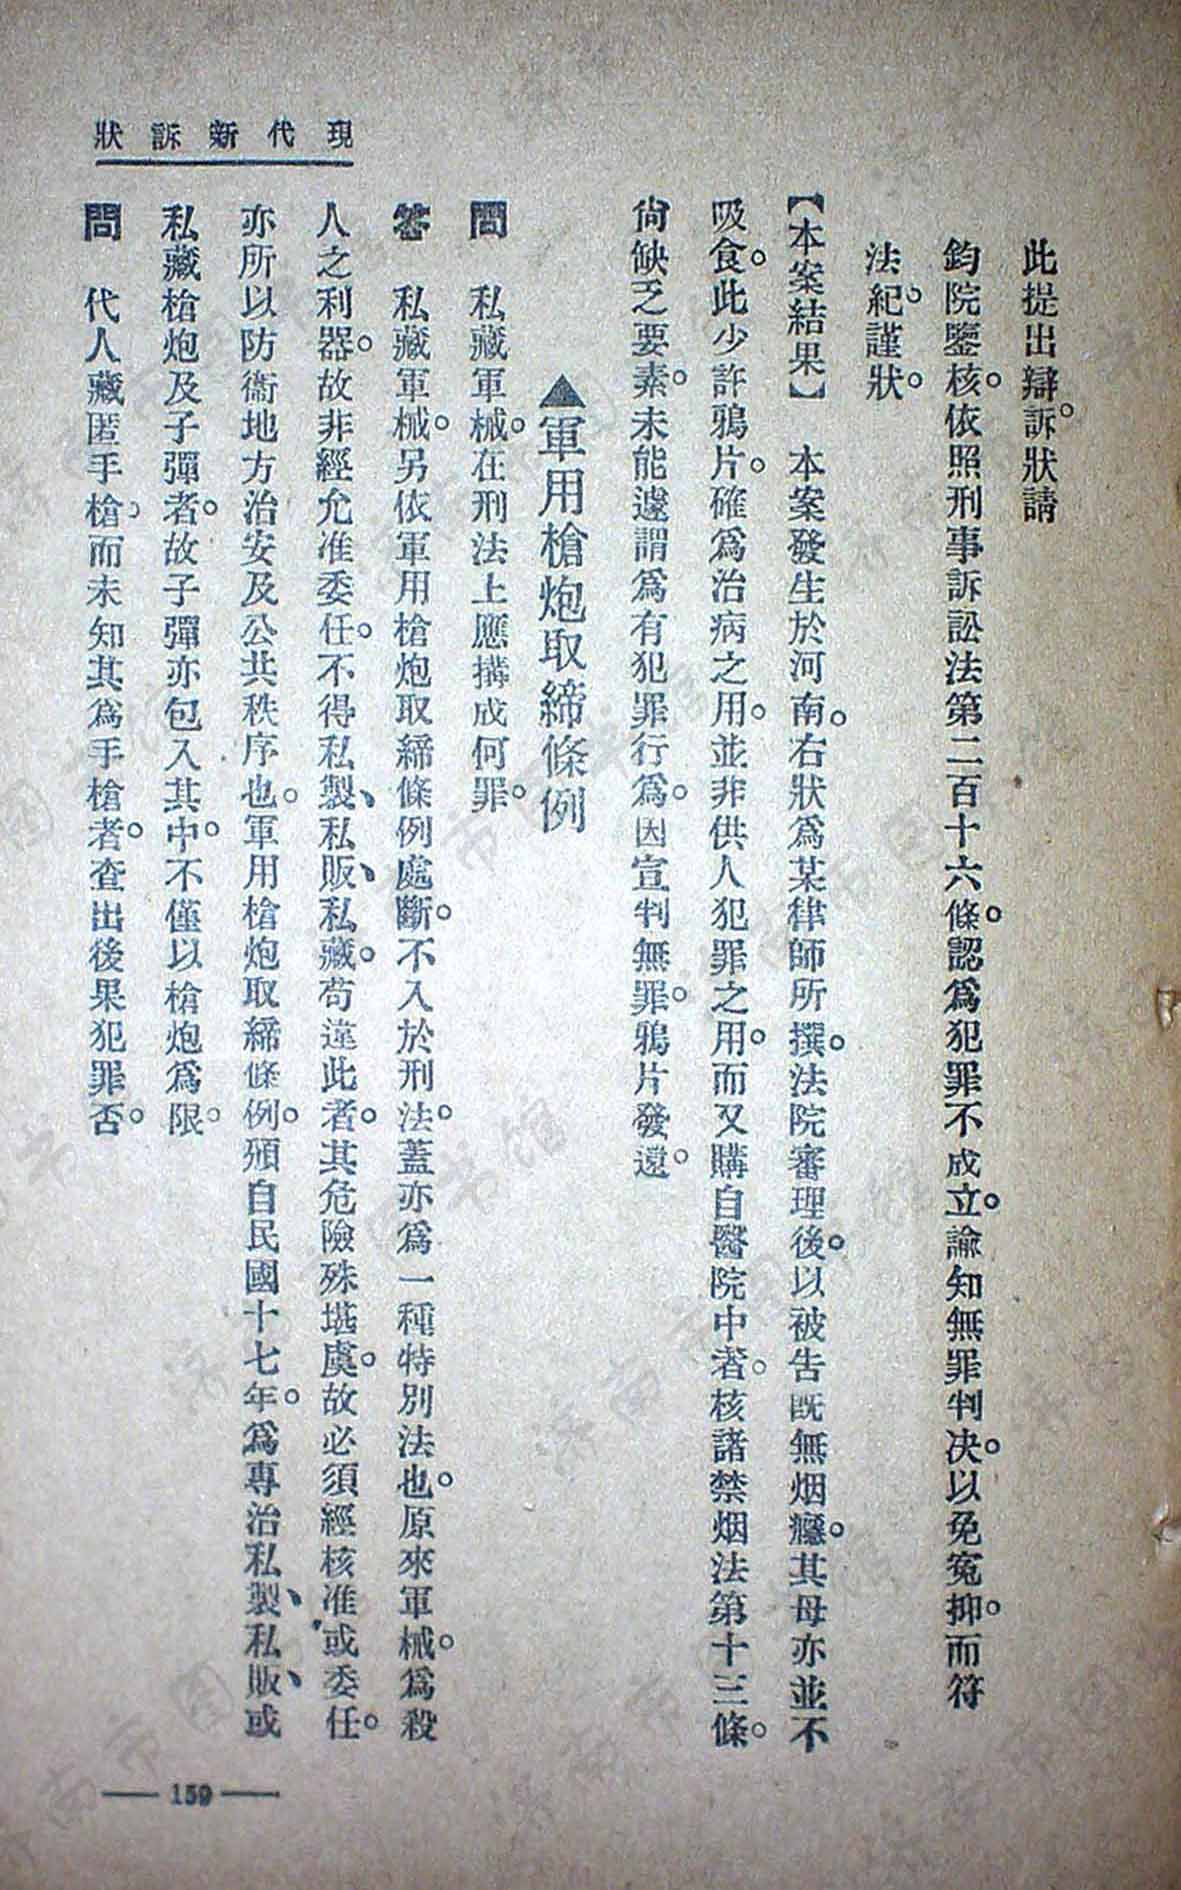 現代新訴狀
此提出辯訴。狀請
鈞院鑒核。依照刑事訴訟法第二百十六條。認爲犯罪不成立。諭知無罪判决。以免冤抑。而符
法紀。謹狀。
【本案結果】　本案發生於河南。右狀爲某律師所撰。法院審理後。以被告既無烟癮。其母亦並不
吸食。此少許鴉片。確爲治病之用。並非供人犯罪之用。而又購自醫院中者。核諸禁烟法第十三條。
尙缺乏要素。未能遽謂爲有犯罪行爲。因宣判無罪。鴉片發還。
▲軍用槍炮取締條例
問　私藏軍械。在刑法上應搆成何罪。
答　私藏軍械。另依軍用槍炮取締條例處斷。不入於刑法。蓋亦爲一種特別法也。原來軍械。爲殺
人之利器。故非經允准委任。不得私製、私販、私藏。苟違此者。其危險殊堪虞。故必須經核准或委任。
亦所以防衞地方治安及公共秩序也。軍用槍炮取締條例。頒自民國十七年。爲專治私製、私販、或
私藏槍炮及子彈者。故子彈亦包入其中。不僅以槍炮爲限。
問　代人藏匿手槍。而未知其爲手槍者。查出後果犯罪否。
159